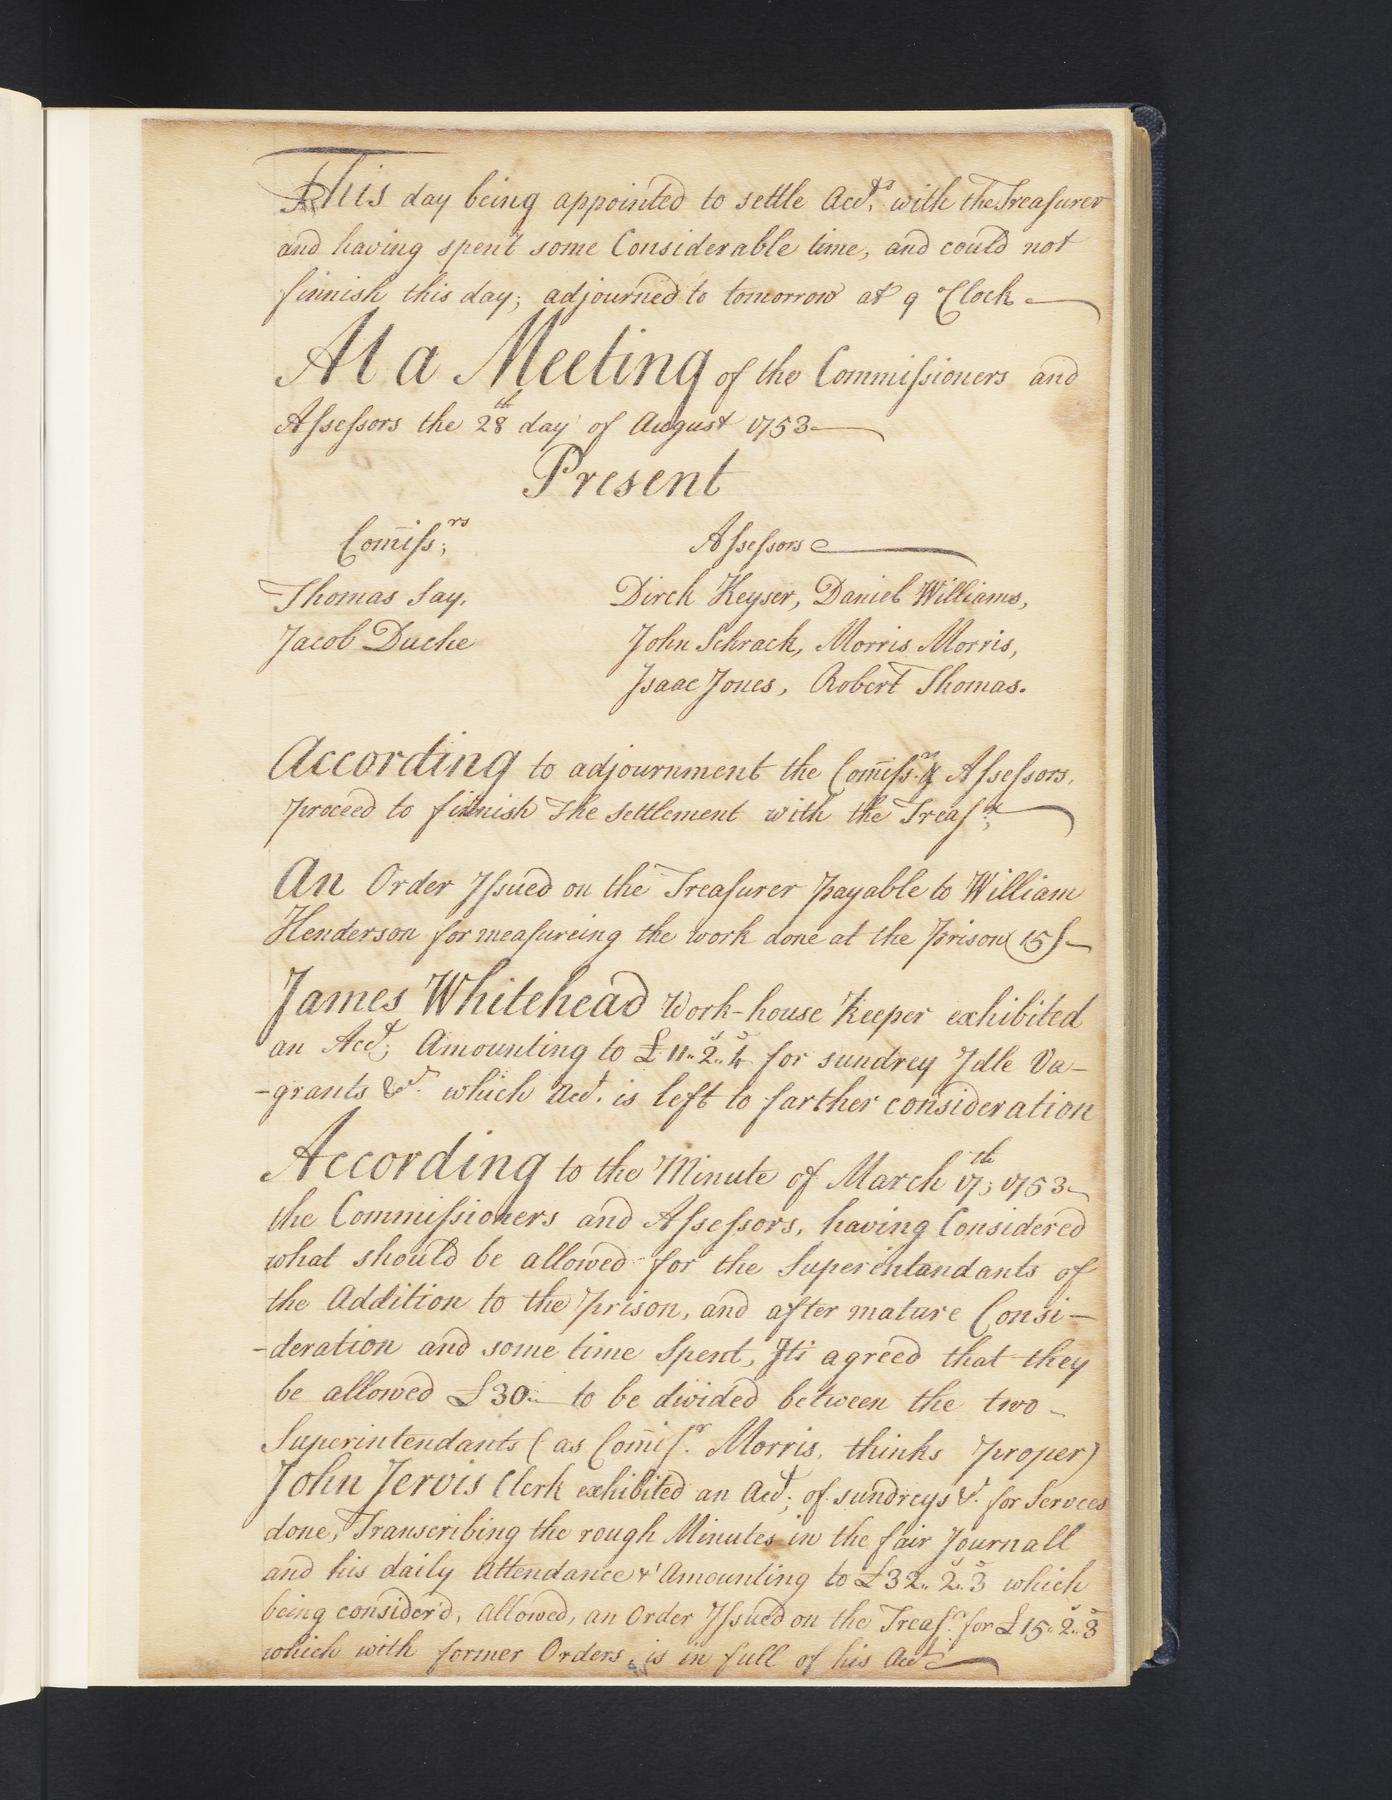 This day being appointed to settle Acct.s with the Treasurer
and having spent some Considerable time, and could not
finnish this day; adjourned to tomorrow at 9 Clock
At a Meeting of the Commissioners and
Assessors the 28th day of August 1753
Present
Comiss;rs
Assessors
Thomas Say,
Dirck Keyser, Daniel Williams,
Jacob Duche
John Schrack, Morris Morris,
Isaac Jones, Robert Thomas.
According to adjournment the Comiss.rs & Assessors,
proceed to finnish the Settlement with the Treas;r
An Order Issued on the Treasurer payable to William
Henderson for measureing the work done at the Prison (15s)
James Whitehead Work-house Keeper exhibited
an Acct; Amounting to £11..2..4 for sundrey Idle Va-
-grants &c. which Acct. is left to farther consideration
According to the Minute of March 17th; 1753
the Commissioners and Assessors, having Considered
what should be allowed for the Superintandants of
the Addition to the Prison, and after mature Consi-
-deration and some time Spent, Iti agreed that they
be allowed £30.. to be divided between the two
Superintendants (as Comis.r Morris, thinks proper)
John Jervis Clerk exhibited an Acct; of sundreys &c. for Servces
done, Transcribing the rough Minutes in the fair Journall
and his daily Attendance &c Amounting to £32..2..3 which
being consider'd, allowed, an Order Issued on the Treas.r for £15..2..3
which with former Orders, is in full of his Acct